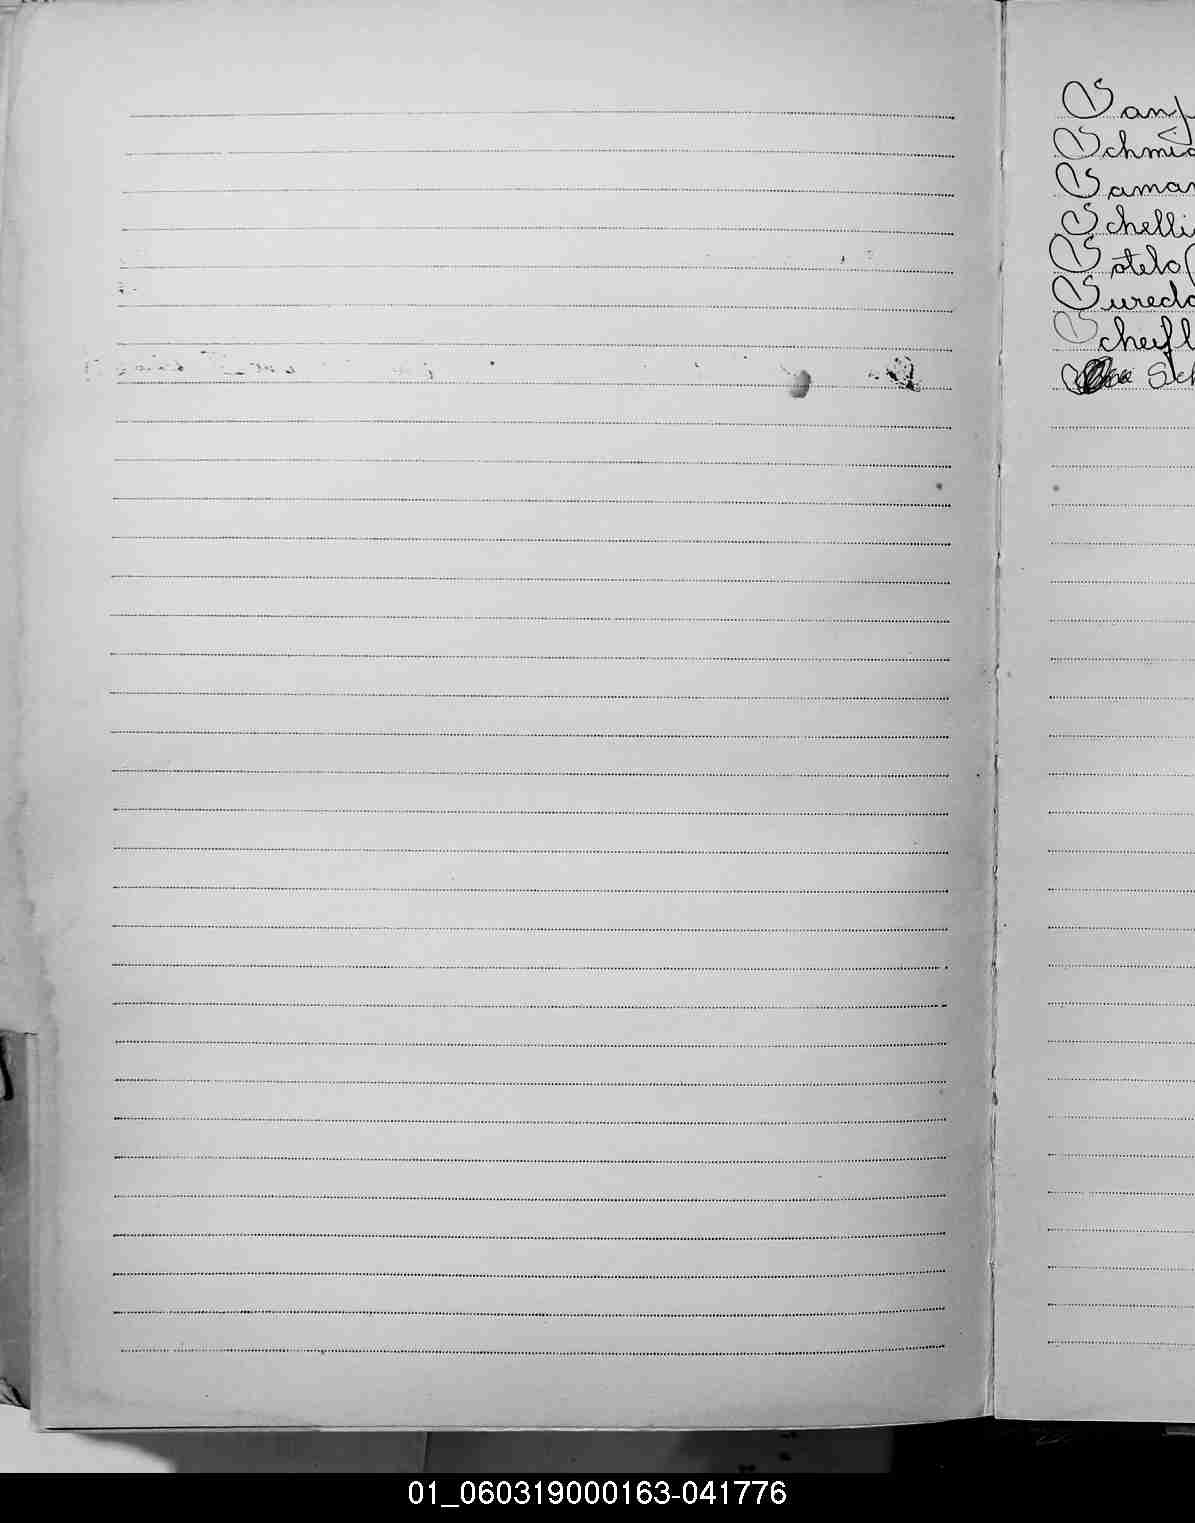 Sanp
Schmid
Saman
Schelli
Sotelo (
Sureda
Scheifl
Sch
01_060319000163-041776